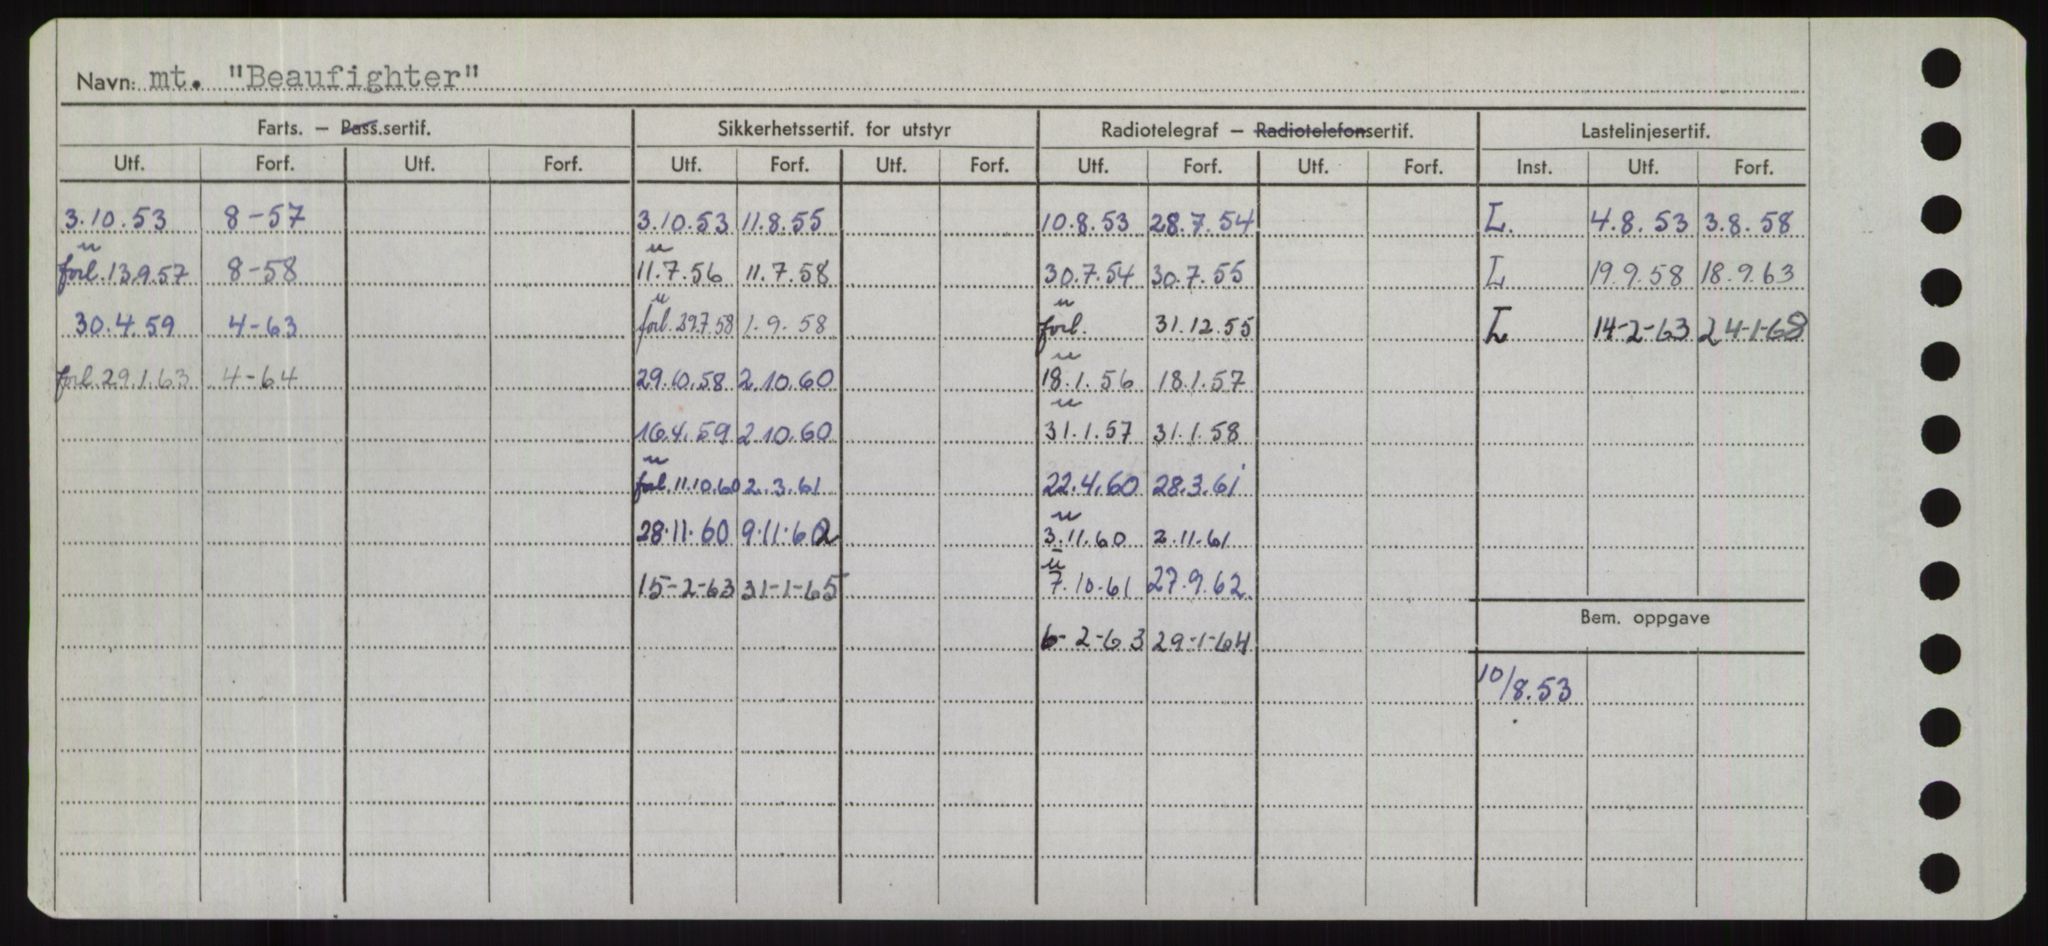 Navn: mt. "Beaufighter"
Farts. – Pass.sertif. Sikkerhetssertif. for utstyr Radiotelegraf – Radiotelefonsertif. Lastelinjesertif.
Utf. Forf. Utf. Forf. Utf. Forf. Utf. Forf. Utf. Forf. Utf. Forf. Inst. Utf. Forf.
3.10.53 8-57 3.10.53 11.8.55 10.8.53 28.7.54 L. 4.8.53 3.8.58
u u
forl. 13.9.57 8-58 11.7.56 11.7.58 30.7.54 30.7.55 L 19.9.58 18.9.63
u u
30.4.59 4-63 forl. 29.7.58 1.9.58 forl. 31.12.55 L 14-2-63 24-1-68
u
forl. 29.1.63 4-64 29.10.58 2.10.60 18.1.56 18.1.57
u
16.4.59 2.10.60 31.1.57 31.1.58
u
forl. 11.10.60 2.3.61 22.4.60 28.3.61
u
28.11.60 9.11.62 3.11.60 2.11.61
u
15-2-63 31-1-65 7.10.61 27.9.62
Bem. oppgave
6-2-63 29-1-64
10/8.53